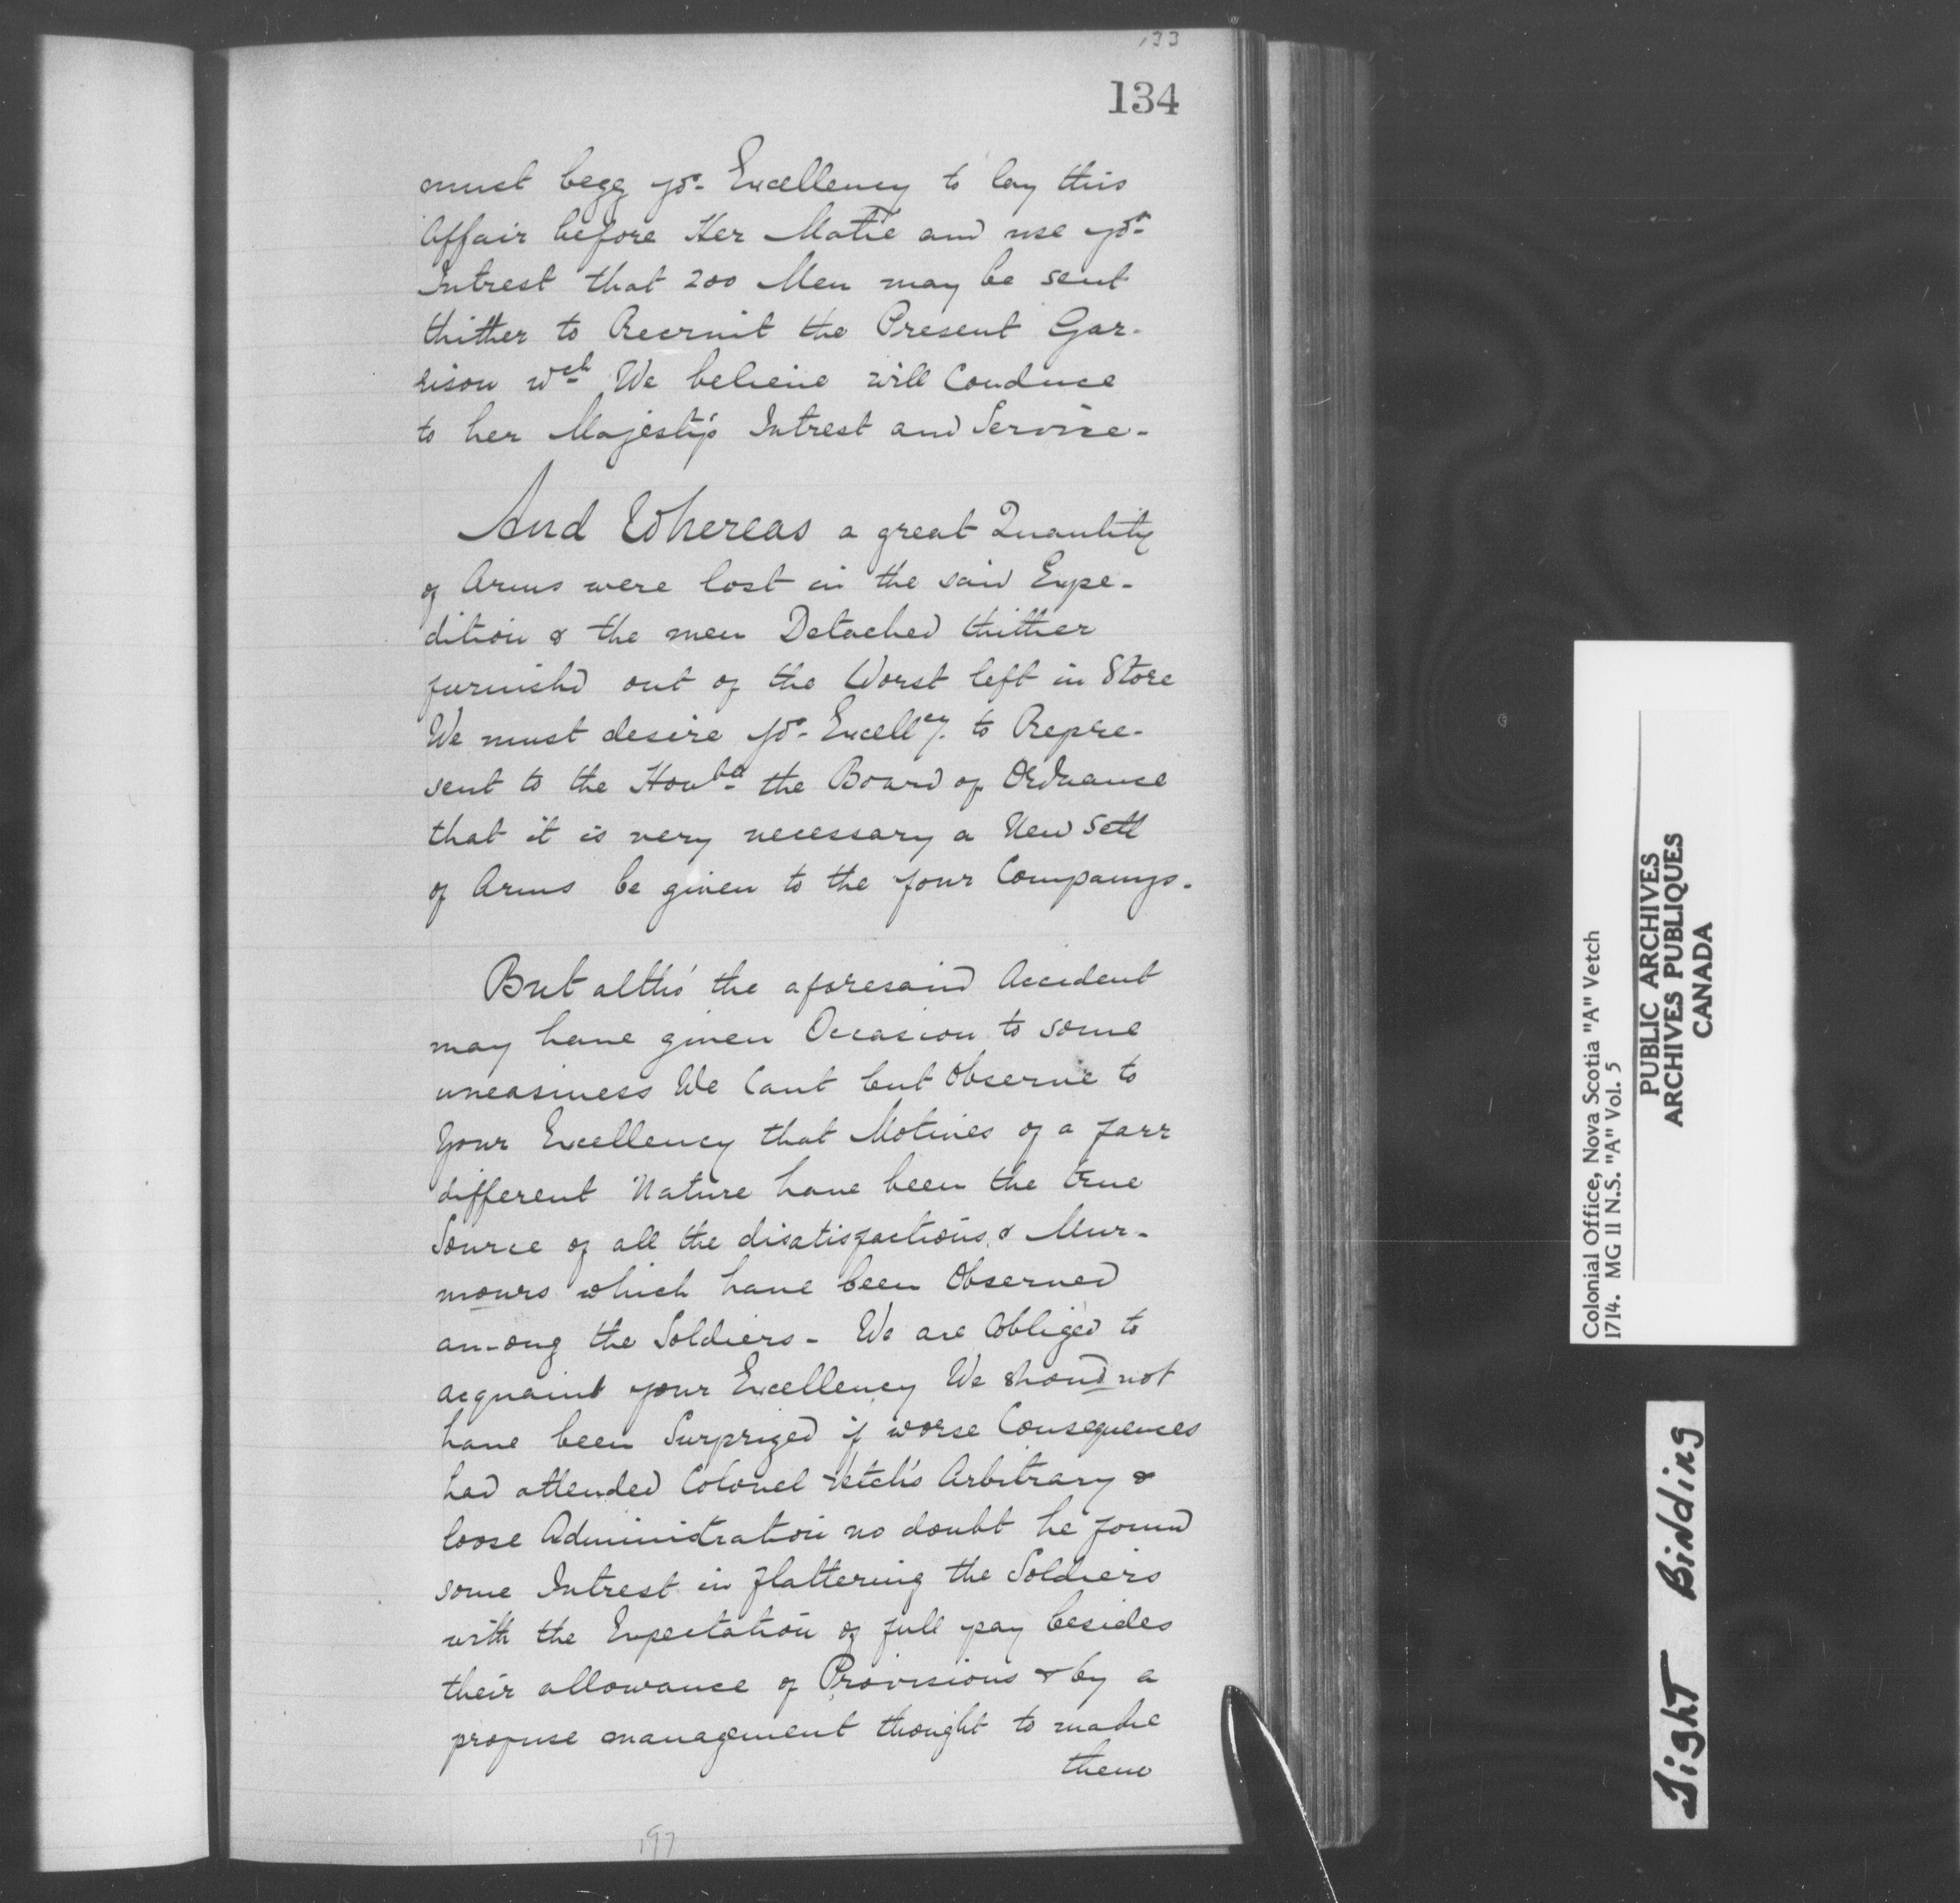 133
134
must begg yor. Excellency to lay this
Affair before Her Matie and use yor.
Intrest that 200 Men may be sent
thither to Recruit the Present Gar-
rison wch We believe will Conduce
to her Majesty's Intrest and Service-
And Whereas a great Quantity
of Arms were lost in the said Expe-
dition & the men Detached thither
furnishd out of the Worst left in Store
We must desire yor. Excellcy. to Repre-
sent to the Honble the Board of Ordnance
that it is very necessary a New Sett
of Arms be given to the four Companys.
But altho' the aforesaid Accident
may have given Occasion to some
uneasiness We Cant but Observe to
Your Excellency that Motives of a farr
different Nature have been the true
Source of all the disatisfactions & Mur-
mours which have been Observed
among the Soldiers- We are Obliged to
acquaint your Excellency We shoud not
have been Surprized if worse Consequences
had attended Colonel Vetch's Arbitrary &
loose Administration no doubt he found
some Intrest in flattering the Soldiers
with the Expectation of full pay besides
their allowance of Provisions & by a
profuse management thought to make
them
197
Colonial Office, Nova Scotia "A" Vetch
1714. MG II N.S. "A" Vol. 5
PUBLIC ARCHIVES
ARCHIVES PUBLIQUES
CANADA
Tight Binding